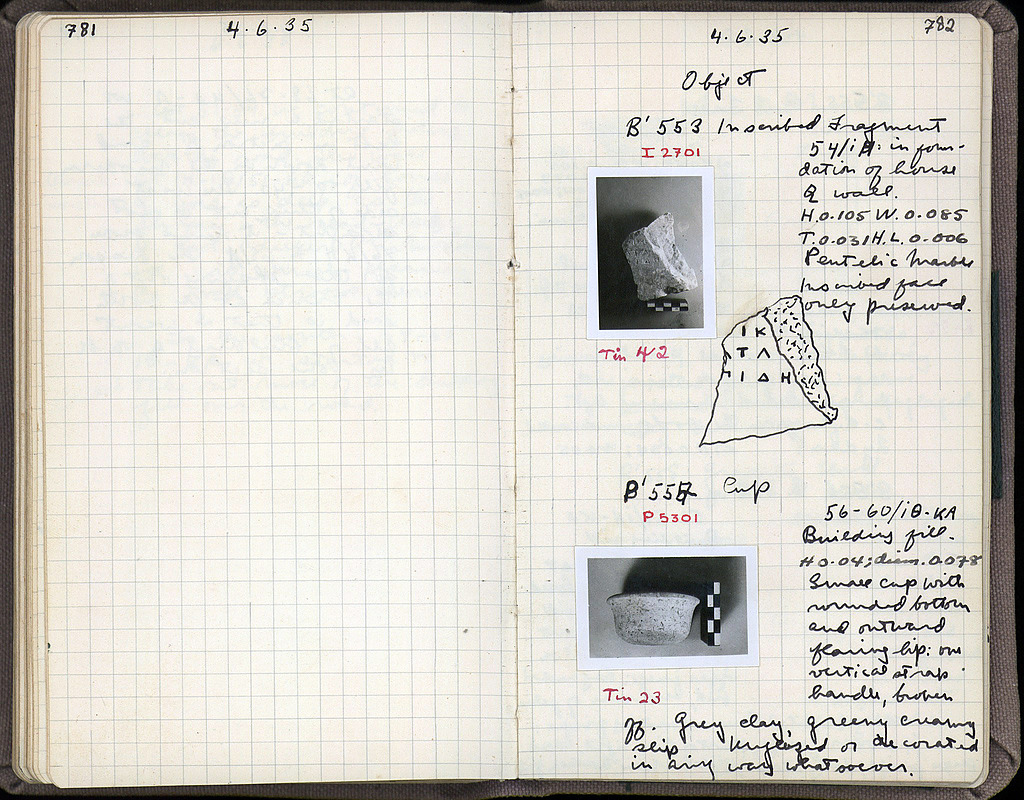 781
4.6.35
4.6.35
782
Object
B' 553 Inscribed Fragment
I 2701
54/ : in foun-
dation of house
Q wall.
H.0.105 W. 0.085
T. 0.031 H.L. 0.006
Pentelic Marble
Inscribed face
only preserved.
Ι Κ
Τ Λ
Ι Δ Η
Tin 42
B' 557 Cup
P 5301
56-60/ΙΘ-ΚΑ
Building fill.
H 0.04; diam. 0.078
Small cup with
rounded bottom
and outward
flaring lip: one
vertical strap
handle, broken
Tin 23
off. Grey clay, greeny creamy
slip. Unglazed or decorated
in any way whatsoever.